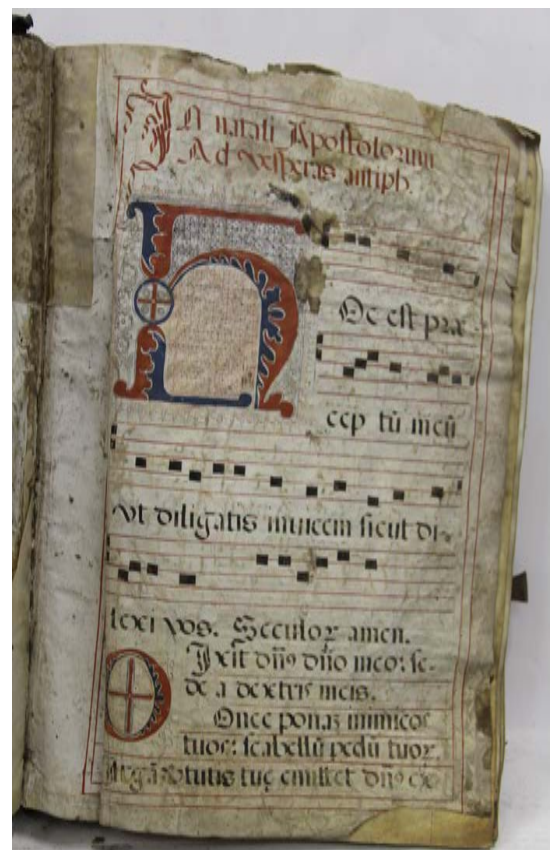 In natali Apostolorum
Ad vesperas antiph.
Hoc est præ-
cep tū meū
vt diligatis inuicem sicut di-
lexi vos. Seculoꝝ amen.
Dixit dn̄s dn̄o meo: se-
de a dextris meis.
Donec ponaz inimicos
tuos: scabellū pedū tuoꝝ.
Virgā v̄tutis tuę emittet dn̄s ex